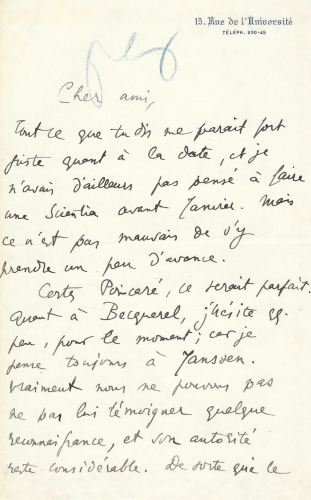 15. Rue de l'Université
TÉLÉPH. 230-45
Cher ami,
Tout ce que tu dis me parait fort
juste quant à la date, et je
n'avais d'ailleurs pas pensé à faire
une Scientia avant Janvier. Mais
ce n'est pas mauvais de s'y
prendre un peu d'avance.
Certes Poincaré, ce serait parfait.
Quant à Becquerel, j'hésite qq.
peu, pour le moment; car je
pense toujours à Janssen.
Vraiment nous ne pouvons pas
ne pas lui témoigner quelque
reconnaissance, et son autorité
reste considérable. De sorte que le